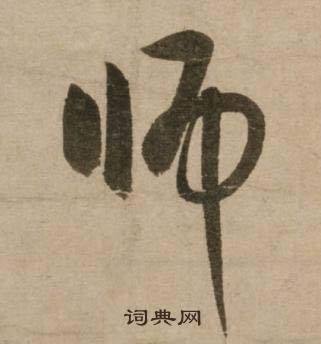 师
词典网